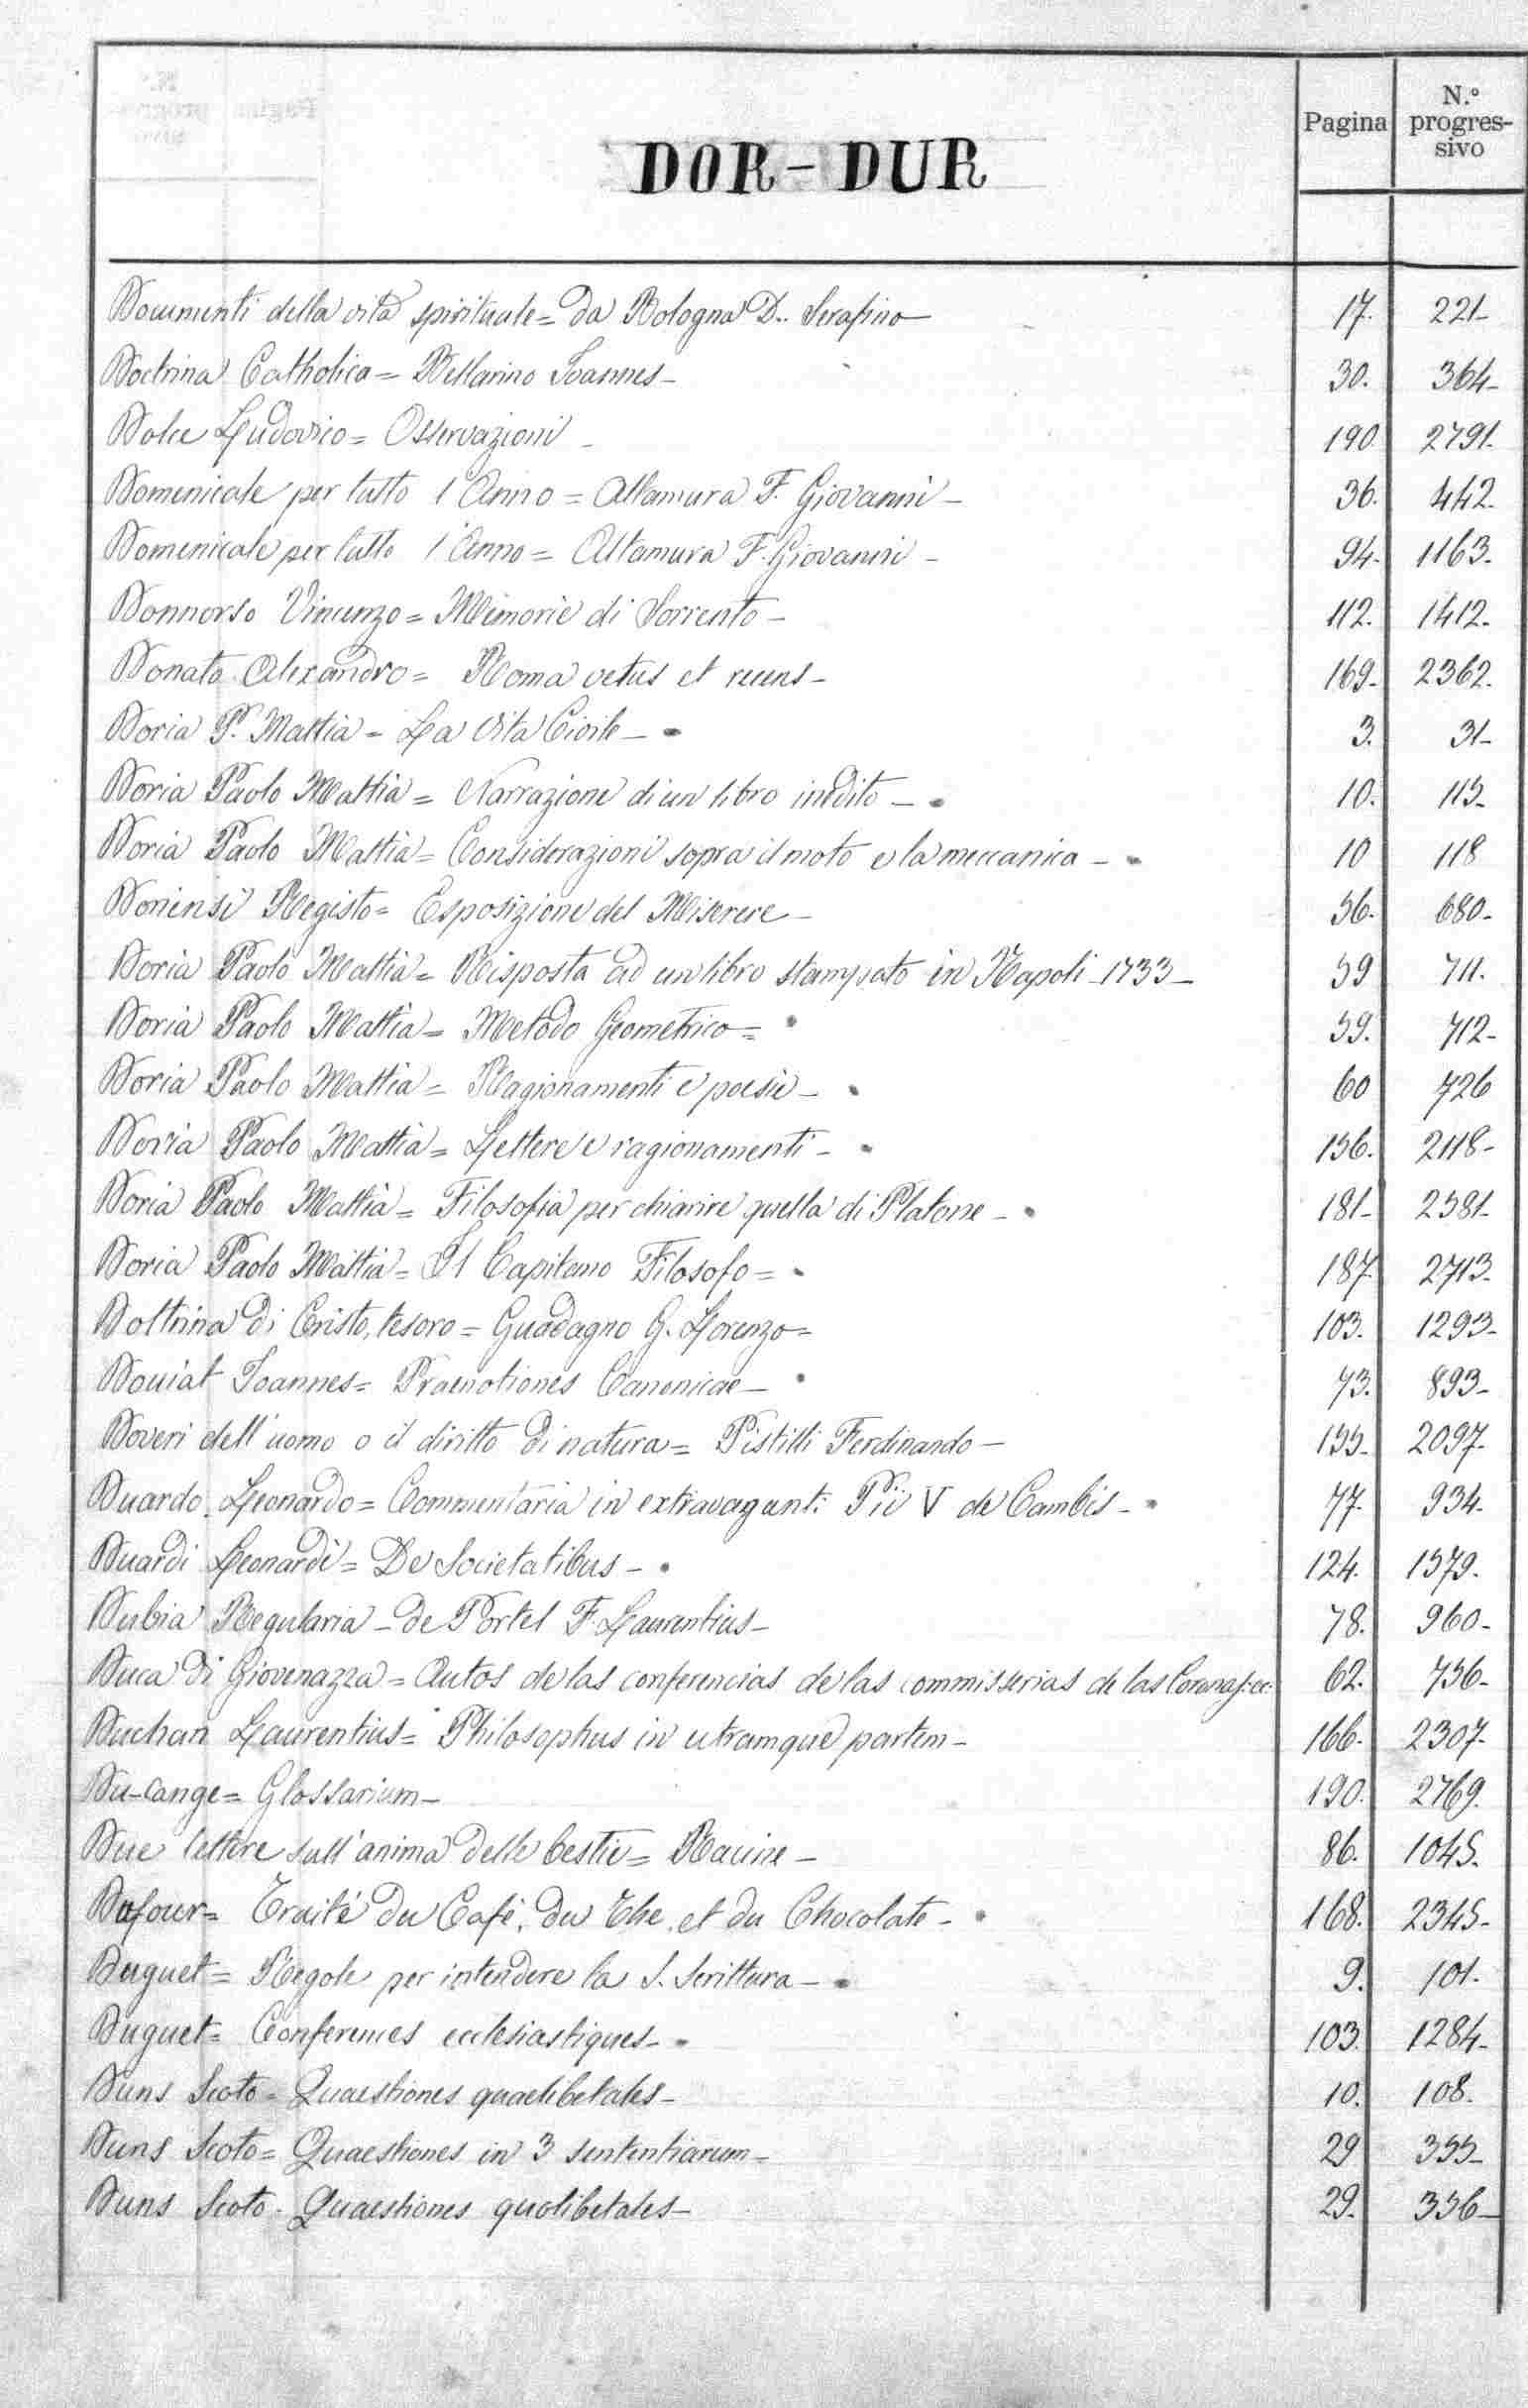 DOR - DUR Pagina N.° progres-sivo
Documenti della vita spirituale = da Bologna D. Serafino — 17. 221-
Doctrina Catholica = Bellarino Joannes - 30. 364-
Dolce Ludovico = Osservazioni - 190 2791-
Domenicale per tutto l'Anno = Altamura F. Giovanni - 36. 442.
Domenicale per tutto l'Anno = Altamura F. Giovanni - 94- 1163-
Donnorso Vincenzo = Memorie di Sorrento - 112. 1412.
Donato Alexandro = Roma vetus et recens - 169- 2362.
Doria P. Mattia = La Vita Civile - 3. 31-
Doria Paolo Mattia = Narrazione di un libro inedito - 10. 115-
Doria Paolo Mattia = Considerazioni sopra il moto e la meccanica - 10 118
Doriensi Registo = Esposizione del Miserere - 56. 680-
Doria Paolo Mattia = Risposta ad un libro stampato in Napoli - 1733 - 59 711.
Doria Paolo Mattia = Metodo Geometrico = 59. 712-
Doria Paolo Mattia = Ragionamenti e poesie - 60 726
Doria Paolo Mattia = Lettere e ragionamenti - 156. 2118-
Doria Paolo Mattia = Filosofia per chiarire quella di Platone - 181- 2581-
Doria Paolo Mattia = Il Capitano Filosofo = 187 2713-
Dottrina di Cristo, tesoro = Guadagno G. Lorenzo = 103. 1293-
Douiat Joannes = Praenotiones Canonicae - 73. 893-
Doveri dell'uomo o il diritto di natura = Pistilli Ferdinando - 155- 2097-
Duardo Leonardo = Commentaria in extravaganti Pii V de Cambis - 77. 934-
Duardi Leonardi = De Societatibus - 124. 1579.
Dubia Regularia - de Portel F. Laurentius - 78. 960-
Duca di Giovenazza = Autos de las conferencias de las commisserias de las Coronas 62. 756-
Duchan Laurentius = Philosophus in utramque partem - 166- 2307-
Du-cange = Glossarium - 190. 2769.
Due lettere sull'anima delle bestie = Racine - 86. 1045.
Dufour = Traité du Café, du The, et du Chocolate - 168. 2345-
Duguet = Regole per intendere la S. Scrittura - 9. 101-
Duguet = Conferences ecclesiastiques - 103. 1284-
Duns Scoto = Quaestiones quaelibetales - 10. 108.
Duns Scoto = Quaestiones in 3 sententiarum - 29 355-
Duns Scoto - Quaestiones quolibetales - 29. 356-